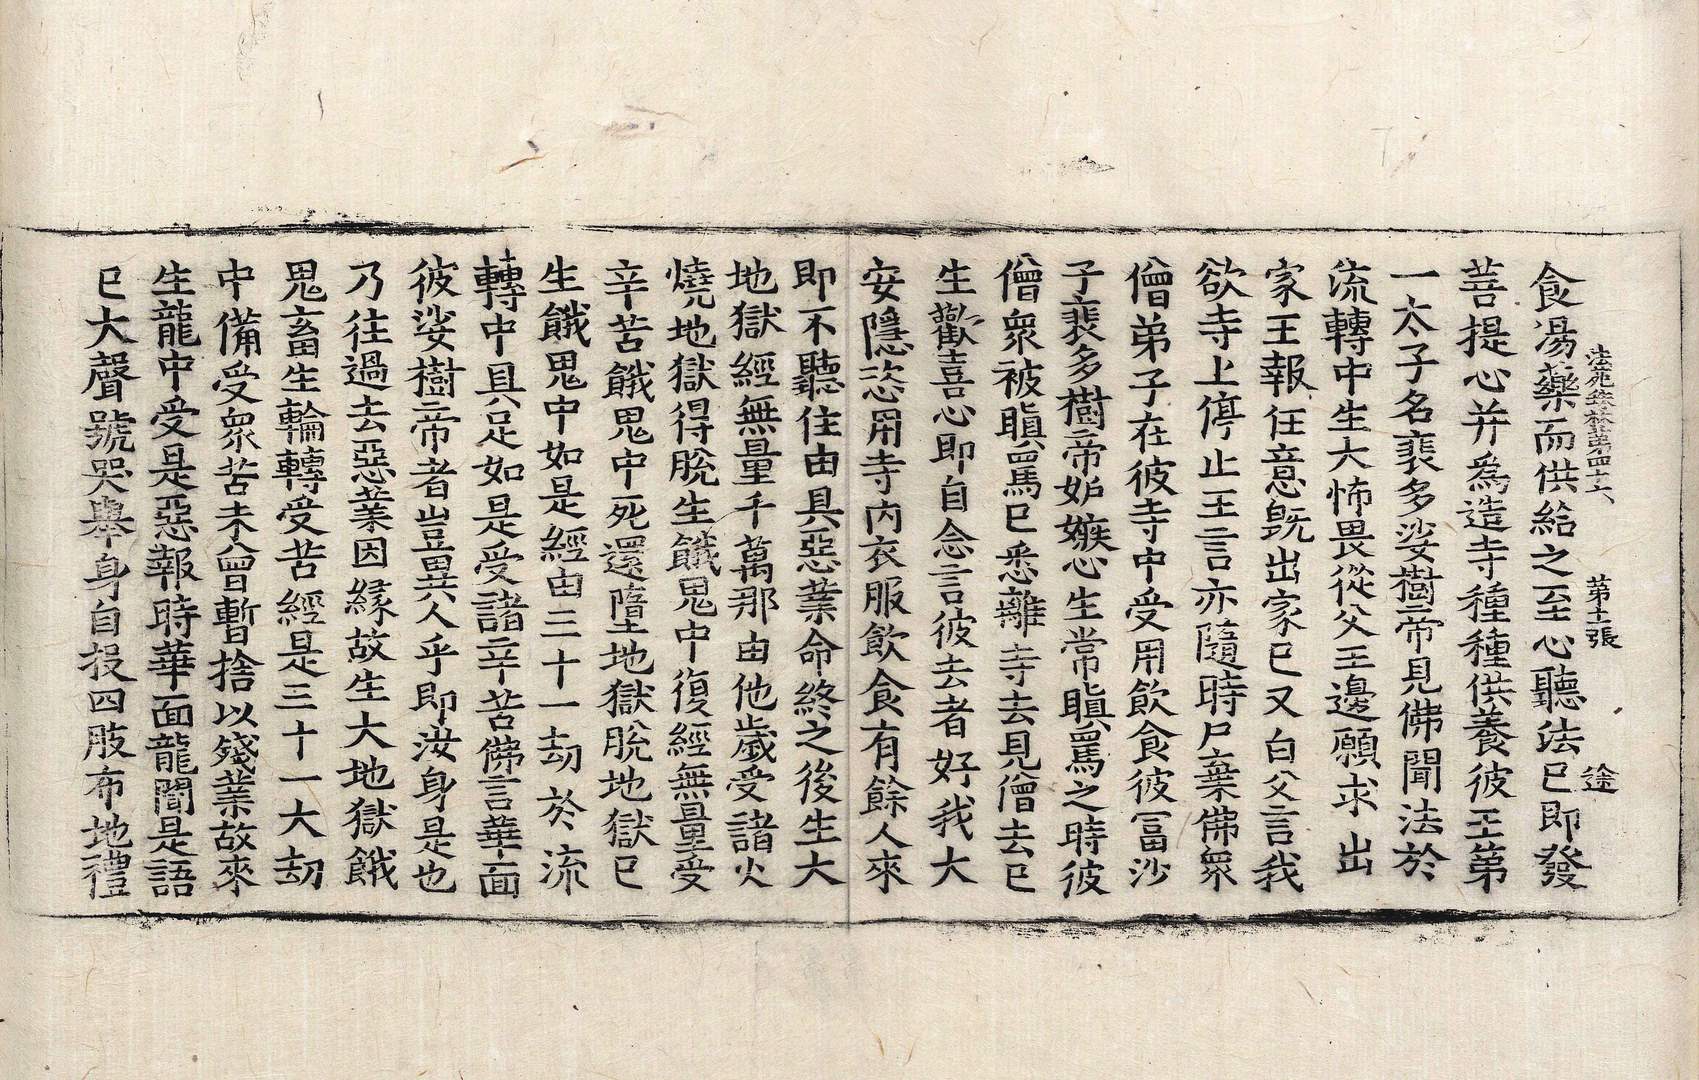 法苑珠林第四十六 第十二張 途
食湯藥而供給之至心聽法已即發
菩提心并爲造寺種種供養彼王第
一太子名裴多娑樹帝見佛聞法於
流轉中生大怖畏從父王邊願求出
家王報任意旣出家已又白父言我
欲寺上停止王言亦隨時尸棄佛衆
僧弟子在彼寺中受用飲食彼冨沙
子裴多樹帝妒嫉心生常瞋罵之時彼
僧衆被瞋罵已悉離寺去見僧去已
生歡喜心即自念言彼去者好我大
安隱恣用寺內衣服飲食有餘人來
即不聽住由具惡業命終之後生大
地獄經無量千萬那由他歲受諸火
燒地獄得脫生餓鬼中復經無量受
辛苦餓鬼中死還墮地獄脫地獄已
生餓鬼中如是經由三十一劫於流
轉中具足如是受諸辛苦佛言華面
彼娑樹帝者豈異人乎即汝身是也
乃往過去惡業因緣故生大地獄餓
鬼畜生輪轉受苦經是三十一大劫
中備受衆苦未曾暫捨以殘業故來
生龍中受是惡報時華面龍聞是語
已大聲號哭舉身自投四肢布地禮